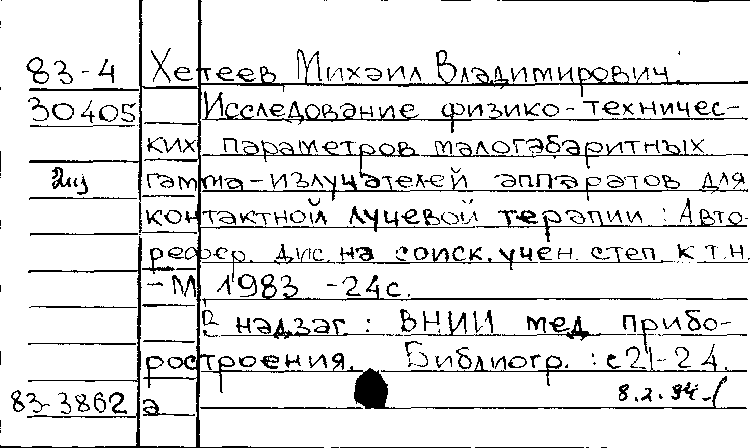 83-4 Хетеев, Михаил Владимирович.
30405 Исследование физико-техничес-
ких параметров малогабаритных
2из гамма-излучателей аппаратов для
контактной лучевой терапии : Авто-
рефер. дис. на соиск. учен. степ. к.т.н.
- М 1983 - 24с.
В надзаг : ВНИИ мед прибо-
ростроения. Библиогр. : с 21-24.
83-3862 а 8.2.84